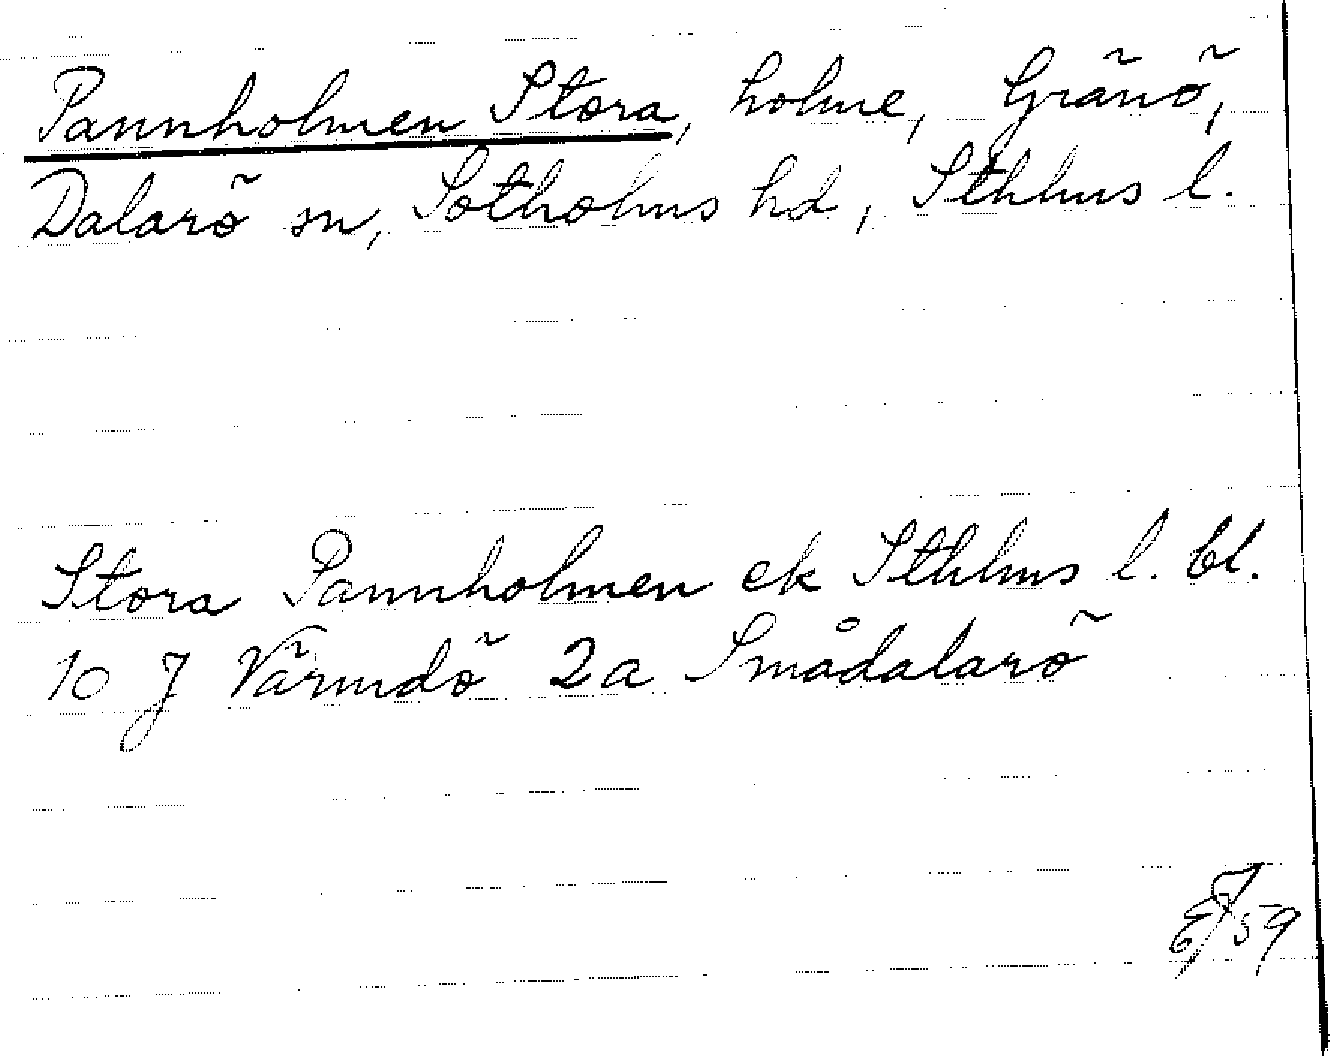 Pannholmen Stora, holme, Gränö,
Dalarö sn, Sotholms hd, Sthlms l.
Stora Pannholmen ek Sthlms l. bl.
10 J Värmdö 2a Smådalarö
EJ 59